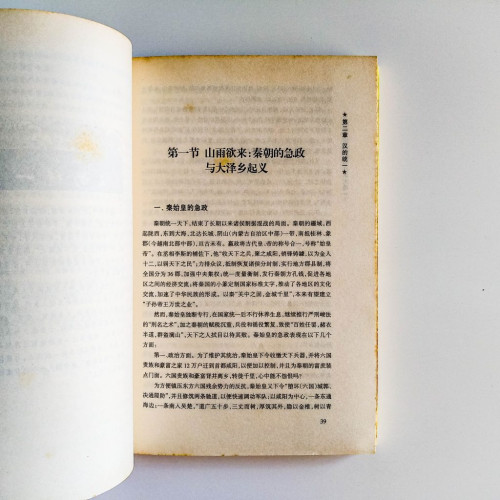 ★第二章 汉的统一★
第一节 山雨欲来：秦朝的急政
与大泽乡起义
一、秦始皇的急政
秦朝统一天下，结束了长期以来诸侯割据混战的局面。秦朝的疆域，西
起陇西，东到大海，北达长城、阴山（内蒙古自治区中部）一带，南抵桂林、象
郡（今越南北部中部），亘古未有。嬴政将古代皇、帝的称号合一，号称“始皇
帝”。在丞相李斯的辅佐下，他“收天下之兵，聚之咸阳，销锋铸鐻，以为金人
十二，以弱天下之民”；力排众议，抵制恢复诸侯分封制，实行地方郡县制，将
全国分为 36 郡，加强中央集权；统一度量衡制，发行秦朝方孔钱，促进各地
区之间的经济交流；将秦国的小篆定制国家标准文字，推动了各地区的文化
交流，加速了中华民族的形成。以秦“关中之固，金城千里”，本来有望建立
“子孙帝王万世之业”。
然而，秦始皇独断专行，在国家统一后不行休养生息，继续推行严刑峻法
的“刑名之术”，加之秦朝的赋税沉重，兵役和徭役繁复，致使“百姓任罢，赭衣
半道，群盗满山”，天下之人拭目以待其毙。秦始皇的急政表现在以下几个
方面：
第一，政治方面。为了维护其统治，秦始皇下令收缴天下兵器，并将六国
贵族和豪富之家 12 万户迁到首都咸阳，以便加以控制，并且为秦朝的富庶装
点门面。六国贵族和豪富背井离乡，转徙千里，心中能不怨恨吗？
为方便镇压东方六国残余势力的反抗，秦始皇又下令“堕坏（六国）城郭，
决通堤防”，并且修筑两条驰道，以便快速调动军队；以咸阳为中心，一条东通
海边；一条南入吴楚。“道广五十步，三丈而树，厚筑其外，隐以金椎，树以青
39